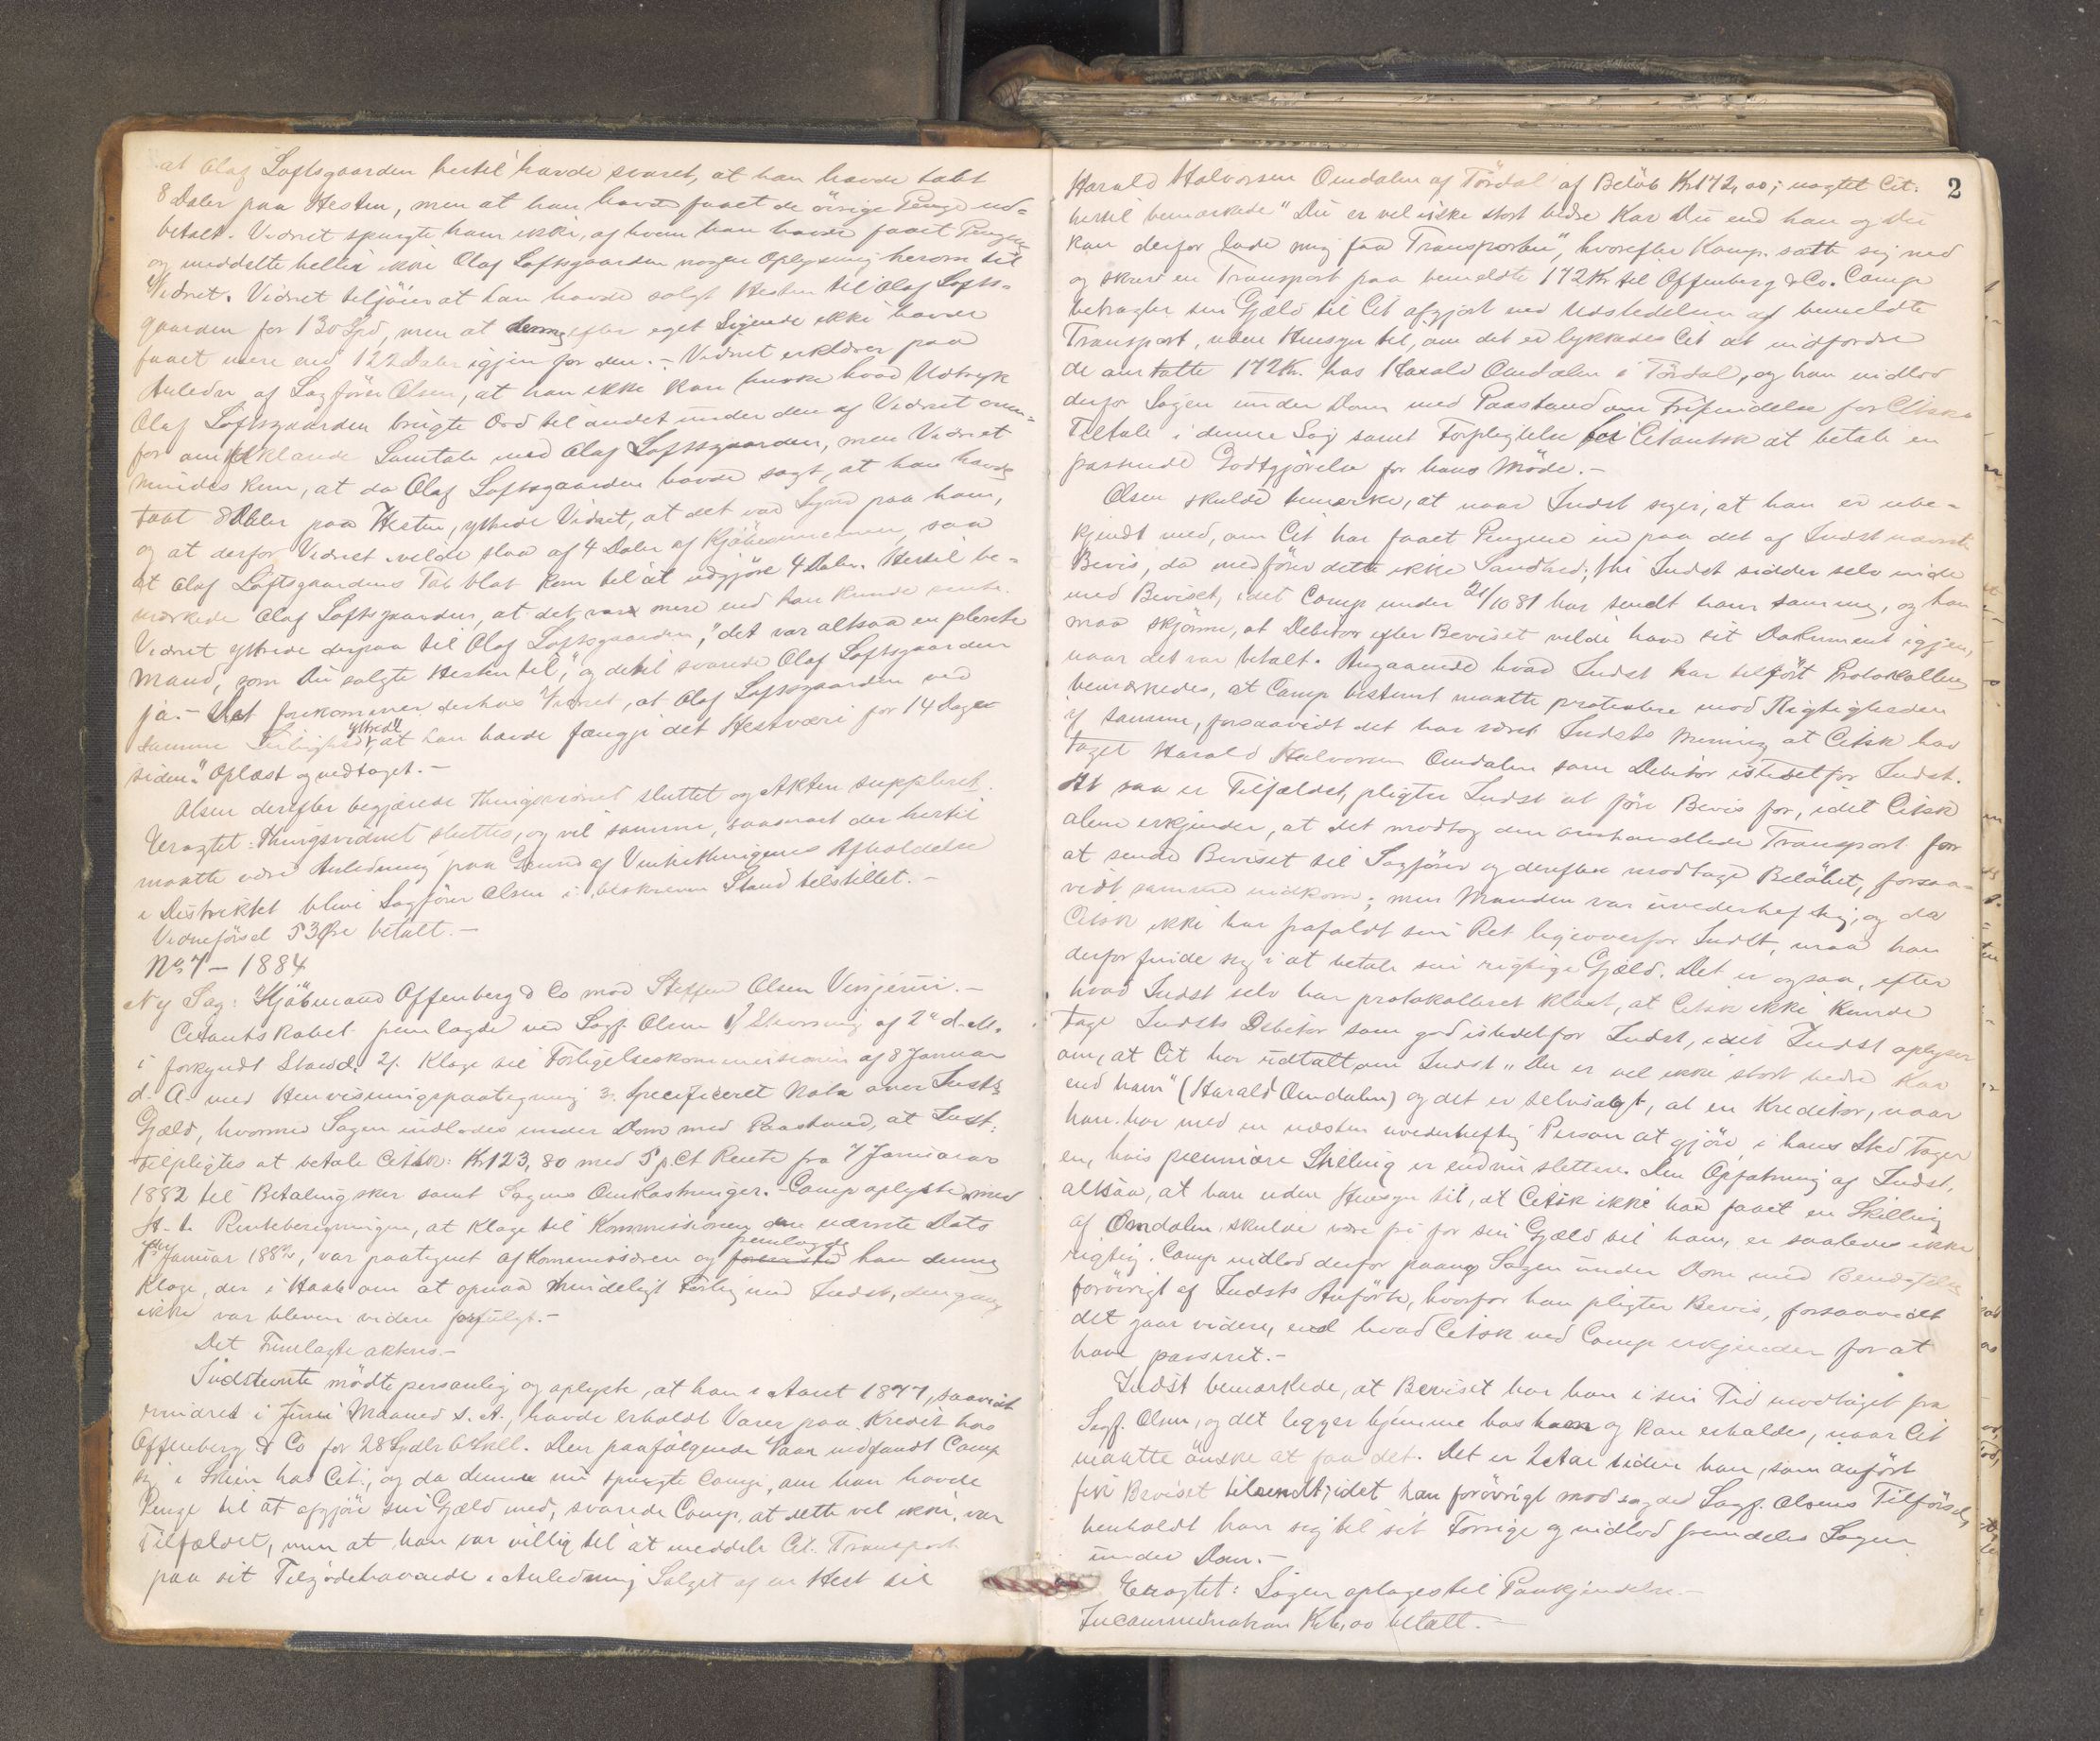 at Olaf Loftsgaarden hertil havde svaret, at han havde tabt
8 Daler paa Hesten, men at han havde faaet de övrige Penge ud-
betalt. Vidnet spurgte ham ikke, af hvem han havde faaet Pengene
og meddelte heller ikke Olaf Loftsgaarden nogen Oplysning herom til
Vidnet. Vidnet tilföier at han havde solgt Hesten til Olaf Lofts-
gaarden for 130 Spd, men at denne efter eget Sigende ikke havde
faaet mere end 122 Daler igjen for den. - Vidnet erklærer paa
Anledn af Sagförer Olsen, at han ikke kan huske hvad Udtryk
Olaf Loftsgaarden brugte Ord til andet under den af Vidnet oven-
for omforklarede Samtale med Olaf Loftsgaarden, men Vidnet
mindes kun, at da Olaf Loftsgaarden havde sagt, at han havde
tabt 8 Daler paa Hesten, yttrede Vidnet, at det var Synd paa ham,
og at derfor Vidnet vilde slaa af 4 Daler af Kjöbesummen, saa
at Olaf Loftsgaardens Tab blot kom til at udgjöre 4 Daler. Hertil be-
mærkede Olaf Loftsgaarden, at det var mere end han kunde vente.
Vidnet yttrede derpaa til Olaf Loftsgaarden, "det var altsaa en
Mand, som Du solgte Hesten til," og dertil svarede Olaf Loftsgaarden
ja. - Det forekommer derhos Vidnet, at Olaf Loftsgaarden ved
samme Leilighed yttrede "at han havde fængji det Hestværi for 14 Dage
siden." Oplæst og vedtaget. -
Olsen derefter begjærede Thingsvidnet sluttet og Akten suppleret.
Eragtet: Thingsvidnet sluttes, og vil samme, saasnart der hertil
maatte være Anledning paa Grund af Vinterthingenes Afholdelse
i Distriktet blive Sagförer Olsen i beskreven Stand tilstillet. -
Vidneförsel 53 Øre betalt. -
No. 7 - 1884
Ny Sag: Kjöbmand Offenberg & Co mod Steffen Olsen Vinjerui. -
Citantskabet fremlagde ved Sagf. Olsen 1/ Stevning af 2den d. M.
i forkyndt Stand. 2/. Klage til Forligelseskommissionen af 8 Januar
d. A. med Henvisningspaategning 3. Specificeret Nota over Indsts
Gjæld, hvormed Sagen indlodes under Dom med Paastand, at Indst:
tilpligtes at betale Citsk: Kr 123,80 med 5 p.Ct Rente fra 7 Januar
1882 til Betaling sker samt Sagens Omkostninger. - Camp oplyste med
H. t. Renteberegningen, at Klage til Kommissionen den nævnte Dato
7de Januar 1882, var paategnet af Kommissæren og fremlagde han denne
Klage, der i Haab om at opnaa mindeligt Forlig med Indst, dengang
ikke var bleven videre forfulgt. -
Det Fremlagte akteres. -
Indstevnte mödte personlig og oplyste, at han i Aaret 1877, saavidt
erindret i Juni Maaned s. A., havde erholdt Varer paa Kredit hos
Offenberg & Co for 28 Spdlr 6 Skill. Den paafölgende Vaar indfandt Comp
sig i Skien hos Cit., og da denne nu spurgte Comp., om han havde
Penge til at afgjöre sin Gjæld med, svarede Comp. at dette vel ikke var
Tilfældet, men at han var villig til at meddele Cit. Transport
paa sit Tilgodehavende i Anledning Salget af en Hest til
2
Harald Halvorsen Omdalen af Tördal af Belöb Kr 172,00; uagtet Cit.
hertil bemærkede "Du er vel ikke stort bedre Kar Du end han og Du
kan derfor lade mig faa Transporten", hvorefter Komp. satte sig ned
og skrev en Transport paa bemeldte 172 Kr til Offenberg & Co. Comp
betragter sin Gjæld til Cit afgjort ved Udstedelsen af bemeldte
Transport, uden Hensyn til, om det er lykkedes Cit at indfordre
de omtalte 172 Kr. hos Harald Omdalen i Tördal, og han indlod
derfor Sagen under Dom med Paastand om Frifindelse for Citsks
Tiltale i denne Sag samt Forpligtelse for Citantsk at betale en
passende Godtgjörelse for hans Möde. -
Olsen skulde bemerke, at naar Indst siger, at han er ube-
kjendt med, om Cit har faaet Pengene ind paa det af Indst nævnte
Bevis, da medförer dette ikke Sandhed, thi Indst sidder selv inde
med Beviset, idet Comp under 21/10 81 har sendt ham samme, og han
maa skjönne, at Debitor efter Beviset vilde have sit Dokument igjen,
naar det var betalt. Angaaende hvad Indst har tilfört Protokollen
bemærkedes, at Comp bestemt maatte protestere mod Rigtigheden
af samme, forsaavidt det har været Indsts Mening at Citsk har
taget Harald Halvorsen Omdalen som Debitor istedetfor Indst.
At saa er Tilfældet, pligter Indst at före Bevis for, idet Citsk
alene erkjender, at det modtog den omhandlede Transport for
at sende Beviset til Sagförer og derefter modtage Belöbet, forsaa-
vidt samme indkom; men Manden var uvederheftig, og da
Citsk ikke har frafaldt sin Ret ligeoverfor Indst, maa han
derfor finde sig i at betale sin rigtige Gjæld. Det er ogsaa, efter
hvad Indst selv har protokolleret klart, at Citsk ikke kunde
tage Indsts Debitor som god istedetfor Indst, idet Indst oplyser
om, at Cit har udtalt om Indst "Du er vel ikke stort bedre Kar
end ham" (Harald Omdalen) og det er selvsagt, at en Kreditor, naar
han har med en næsten uvederheftig Person at gjöre, i hans Sted tager
en, hvis pecuniære Stilling er endnu slettere. Den Opfatning af Indst,
altsaa, at han uden Hensyn til, at Citsk ikke har faaet en Skilling
af Omdalen, skulde være fri for sin Gjæld til ham, er saaledes ikke
rigtig. Comp indlod derfor paany Sagen under Dom med Benægtelse
forövrigt af Indsts Anförte, hvorfor han pligter Bevis, forsaavidt
det gaar videre, end hvad Citsk ved Comp erkjender for at
have passeret. -
Indst bemærkede, at Beviset har han i sin Tid modtaget fra
Sagf. Olsen, og det ligger hjemme hos ham og kan erholdes, naar Cit
maatte önske at faa det. Det er 2 Aar siden han, som anfört
fik Beviset tilsendt; idet han forövrigt modsagde Sagf. Olsens Tilförsel,
henholdt han sig til sit Forrige og indlod fremdeles Sagen
under Dom. -
Eragtet: Sagen optages til Paakjendelse. -
Incammination Kr 6,00 betalt. -